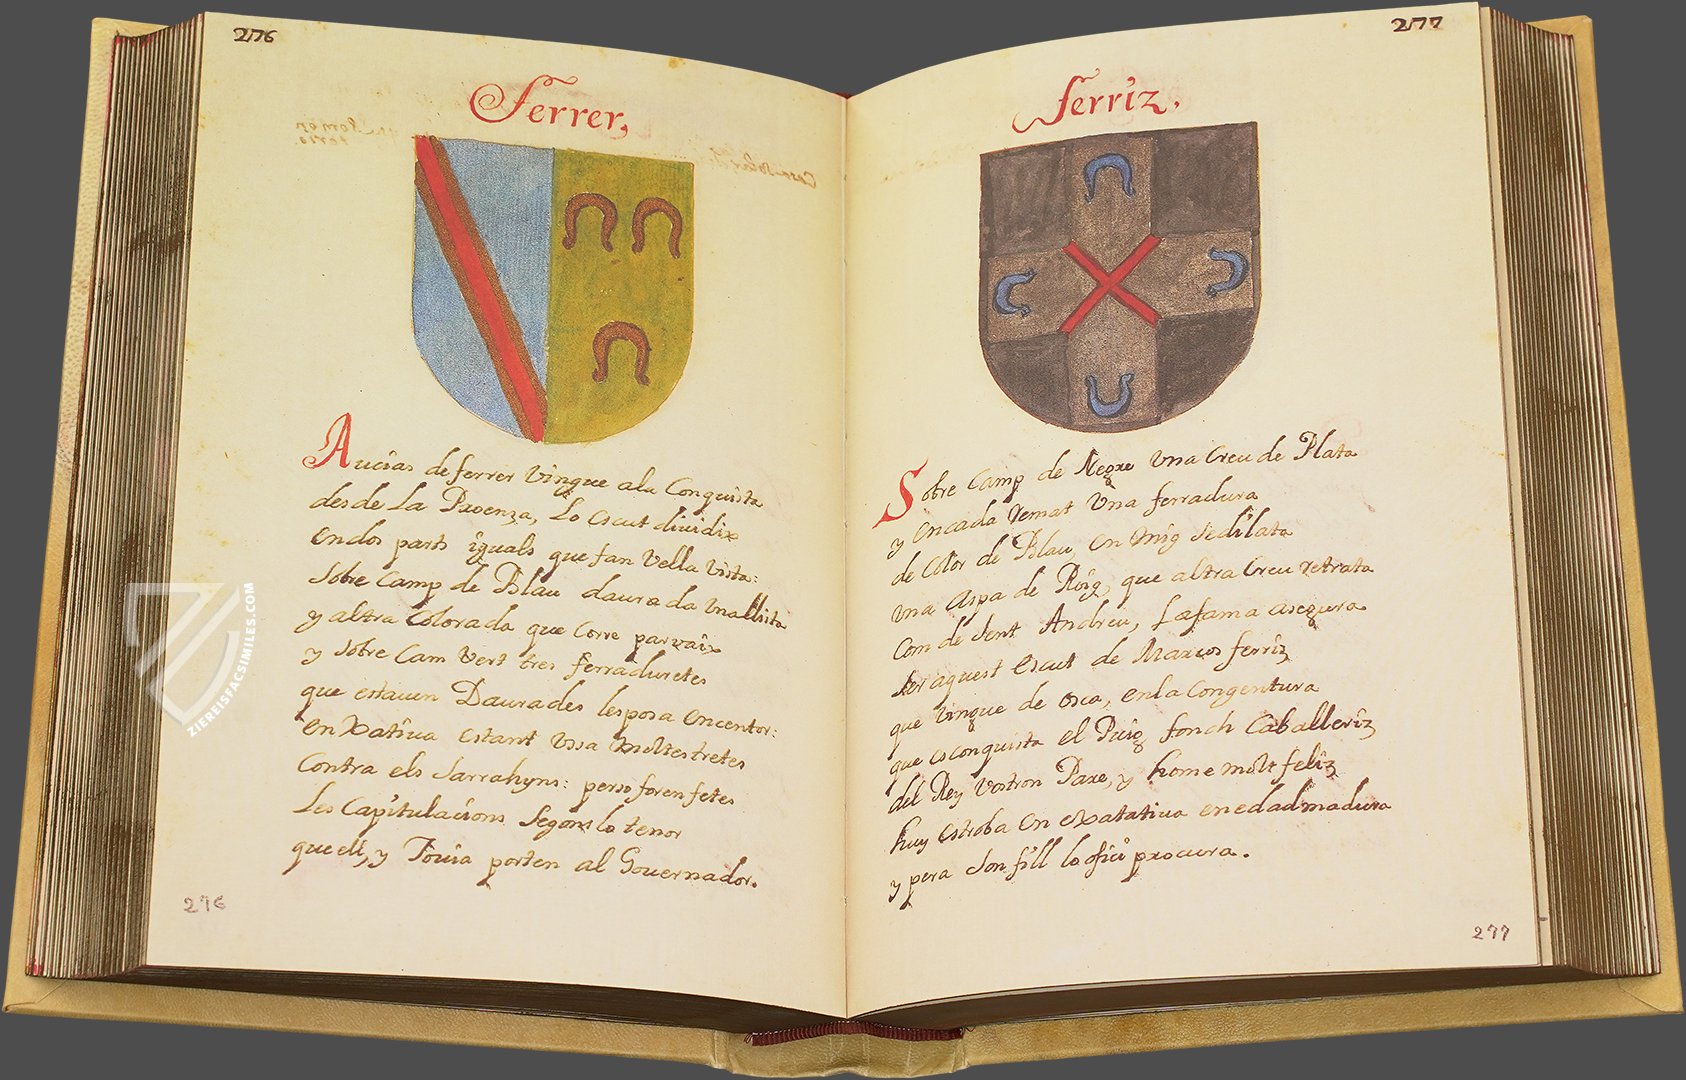 276
Ferrer,
Aucias de ferrer vingue ala Conquista
desde La Proenza, Lo escut dividix
en dos parts iguals que fan vella vista:
Sobre Camp de Blau daurada una llista
y altra Colorada que Corre parvaix
y sobre Cam vert tres ferraduretes
que estauen Daurades lesposa encentor:
en Xativa estant usa moltes tretes
Contra els Sarrahyns: perso foren fetes
Les Capitulacions Segons lo tenor
que ell, y Tovia porten al Governador.
276
277
ferriz,
Sobre Camp de Negre una Creu de Plata
y encada remat una ferradura
de Color de Blau, en mig sedilata
una Aspa de Roig, que altra Creu retrata
Com de Sent Andreu, Lafama asegura
Ser aquest escut de Marcos ferriz
que vingue de Osca, enla Congentura
que esconquista el Puig fonch Caballeriz
del Rey Vostron Pare, y home molt feliz
huy estroba en exatativa en edad madura
y pera Son fill lo ofici procura.
277
ZIEREISFACSIMILES.COM